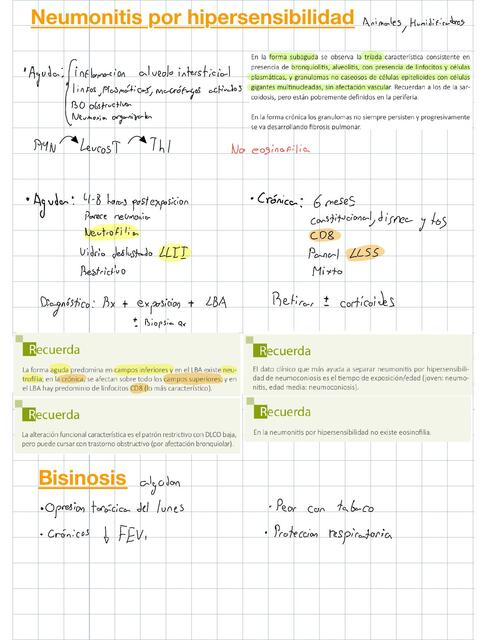 Neumonitis por hipersensibilidad Animales, Humidificadores
• Aguda: inflamacion alveolo intersticial
linfos, Plasmáticas, macrófagos activados
BO obstructiva
Neumonia organizativa
En la forma subaguda se observa la tríada característica consistente en
presencia de bronquiolitis, alveolitis, con presencia de linfocitos y células
plasmáticas, y granulomas no caseosos de células epitelioides con células
gigantes multinucleadas, sin afectación vascular. Recuerdan a los de la sar-
coidosis, pero están pobremente definidos en la periferia.
En la forma crónica los granulomas no siempre persisten y progresivamente
se va desarrollando fibrosis pulmonar.
Leucos T Th1
No eosinofilia
• Aguda: 4-8 horas postexposicion
Parece neumonia
Neutrofilia
Vidrio deslustrado LLII
Restrictivo
• Crónica: 6 meses
Constitucional, disnea y tos
CD8
Panal LLSS
Mixto
Diagnóstico: Rx + exposicion + LBA
± Biopsia qx
Retirar ± corticoides
Recuerda
La forma aguda predomina en campos inferiores y en el LBA existe neu-
trofilia; en la crónica, se afectan sobre todo los campos superiores, y en
el LBA hay predominio de linfocitos CD8 (lo más característico).
Recuerda
El dato clínico que más ayuda a separar neumonitis por hipersensibili-
dad de neumoconiosis es el tiempo de exposición/edad (joven: neumo-
nitis, edad media: neumoconiosis).
Recuerda
La alteración funcional característica es el patrón restrictivo con DLCO baja,
pero puede cursar con trastorno obstructivo (por afectación bronquiolar).
Recuerda
En la neumonitis por hipersensibilidad no existe eosinofilia.
Bisinosis algodon
• Opresion torácica del lunes
• Crónicos ↓ FEV₁
• Peor con tabaco
• Proteccion respiratoria